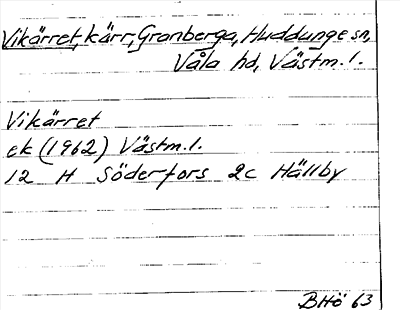 Vikärret, kärr, Granberga, Huddunge sn,
Våla hd, Västm. l.
Vikärret
ek (1962) Västm. l.
12 H Söderfors 2c Hällby
BHö 63